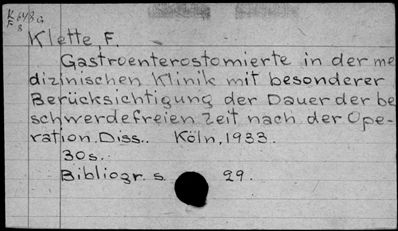 Klette F.
Gastroenterostomierte in der me
dizinischen Klinik mit besonderer
Berücksichtigung der Dauer der be
schwerdefreien Zeit nach der Ope-
ration. Diss.. Köln, 1933.
30s.
Bibliogr. s. 29.